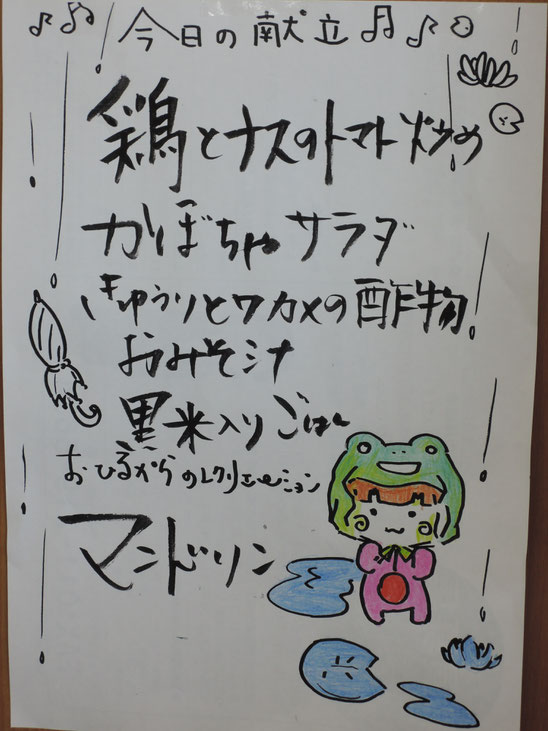 今日の献立
鶏とナスのトマト炒め
かぼちゃサラダ
きゅうりとワカメの酢物
おみそ汁
黒米入りごはん
おひるからのレクリエーション
マンドリン